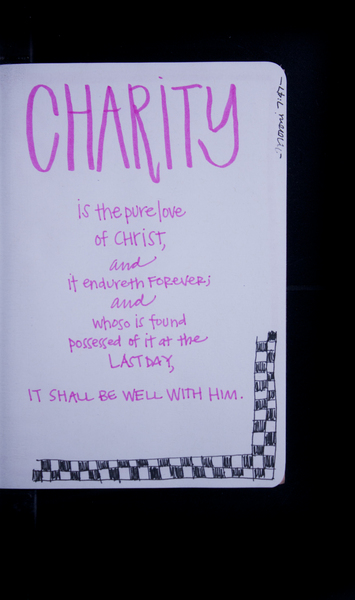 CHARITY
is the pure love
of CHRIST,
and
it endureth FOREVER;
and
whoso is found
possessed of it at the
LAST DAY,
IT SHALL BE WELL WITH HIM.